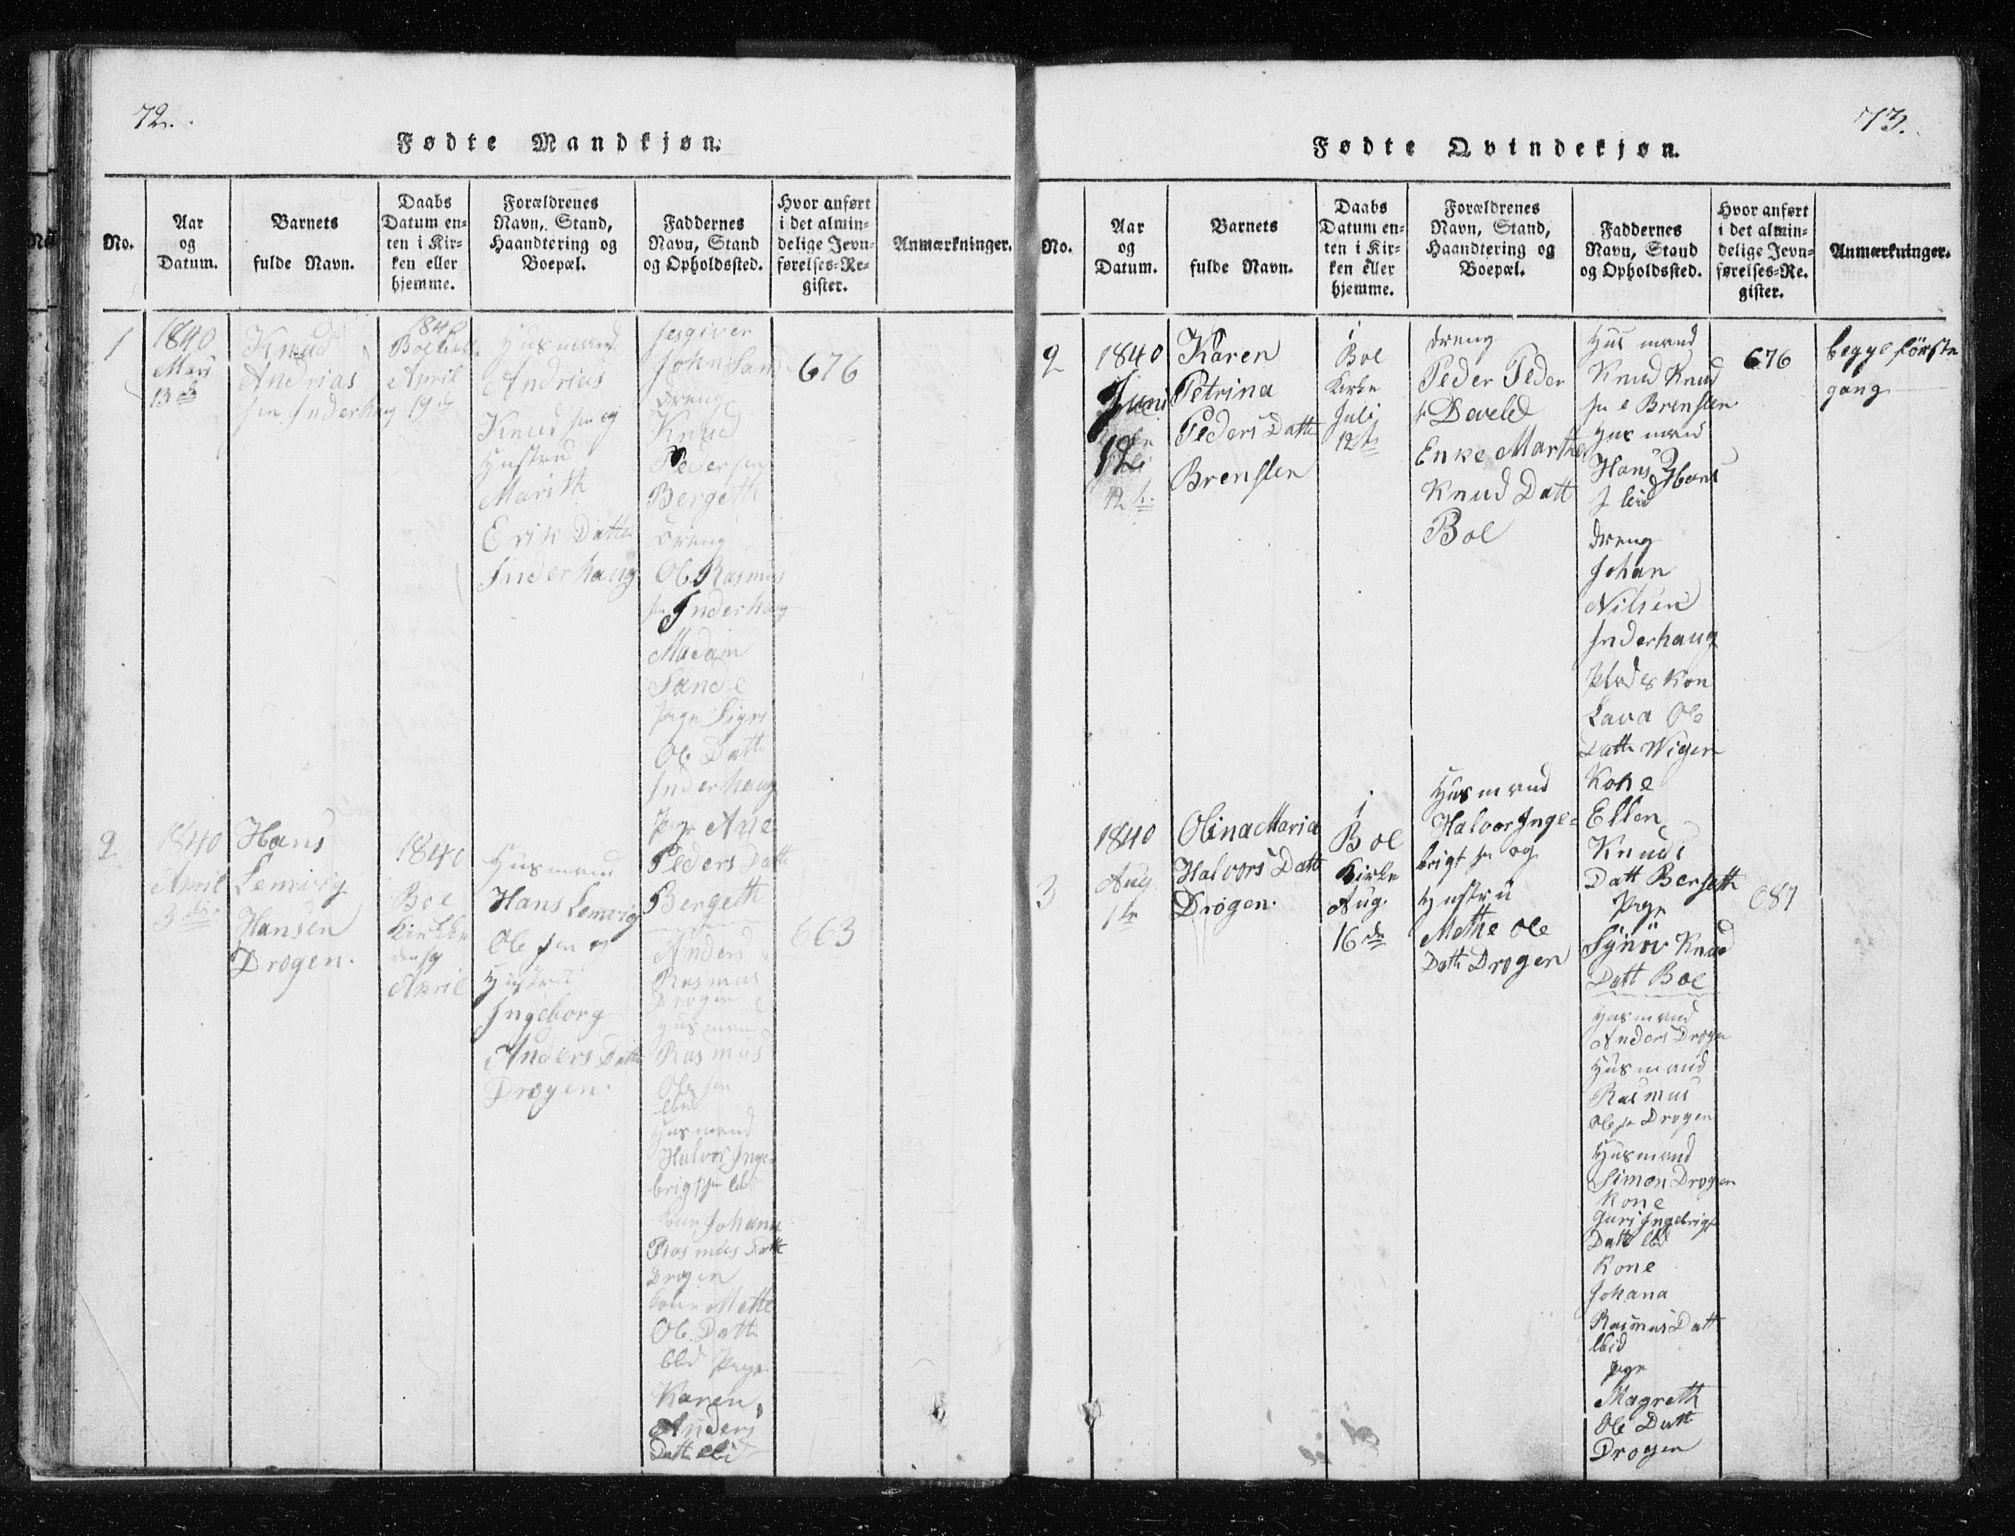 72.
Fødte Mandkjøn.
No.
Aar
og
Datum.
Barnets
fulde Navn.
Daabs
Datum en-
ten i Kir-
ken eller
hjemme.
Forældrenes
Navn, Stand,
Haandtering og
Boepæl.
Faddernes
Navn, Stand
og Opholdssted.
Hvor anført
i det almin-
delige Jevn-
førelses-Re-
gister.
Anmærkninger.
1
1840
13de
Knud
Andrias
sen Inderhaug
1840
April
19de
Husmand
Andrias
Knud sen og
Hustru
Marith
Erik Datte
Inderhaug
John Sand
Dreng
Knud
Pedersen
Bergeth
Dreng
Ole Rasmus
sen Inderhaug
Madam
Sande
Pige Sigri
Ole Datte
Inderhaug
Pige Ane
Peders Datte
Bergeth
676
2
1840
April
3die
Hans
Lemvig
Hansen
Drogen.
1840
Boe
Kirkke
den 19
April
Husmand
Hans Lemvig
Ole sen og
Hustru
Ingeborg
Anders Datte
Drogen.
Anders
Rasmus
Drogen
Husmand
Rasmus
Ole sen
Ibid
Husmand
Halvor Inge-
brigt sen ibid
Kone Johana
Rasmus Datte
Drogen
Kone Methe
Ole Datte
Ibid Pige
Karen
Anders
Datte ibid
663
73.
Fødte Qvindekjøn.
No.
Aar
og
Datum.
Barnets
fulde Navn.
Daabs
Datum en-
ten i Kir-
ken eller
hjemme.
Forældrenes
Navn, Stand,
Haandtering og
Boepæl.
Faddernes
Navn, Stand
og Opholdssted.
Hvor anført
i det almin-
delige Jevn-
førelses-Re-
gister.
Anmærkninger.
2
1840
Juni
12
Karen
Petrina
Peders Datte
Brensten
i
Boe
Kirke
Juli
12te
Dreng
Peder Peder
Enke Marthe
Knud Datt
Boe
Hus mand
Knud Knud
sen Brensten
Hus mand
Hans Hans
Dreng
Johan
Nilsen
Inderhaug
Lava Ole
Datte Wigen
Kone
Ellen
Knuds
Datt Berseth
Pige
Synøv Knud
Datt Boe
676
begge første
gang
3
1840
Aug.
1te
Olina Maria
Halvors Datte
Drogen.
i
Boe
Kirke
Aug.
16de
Husmand
Halvor Inge-
brigt sen og
Hustru
Methe Ole
Datte Drogen
Husmand
Anders Drogen
Husmand
Rasmus
Ole sen Drogen
Husmand
Simon Drogen
Kone
Guri Ingebrigt
Datt ibid
Kone
Johana
Rasmus Datt
Ibid
Pige
Magreth
Ole Datt
Drogen